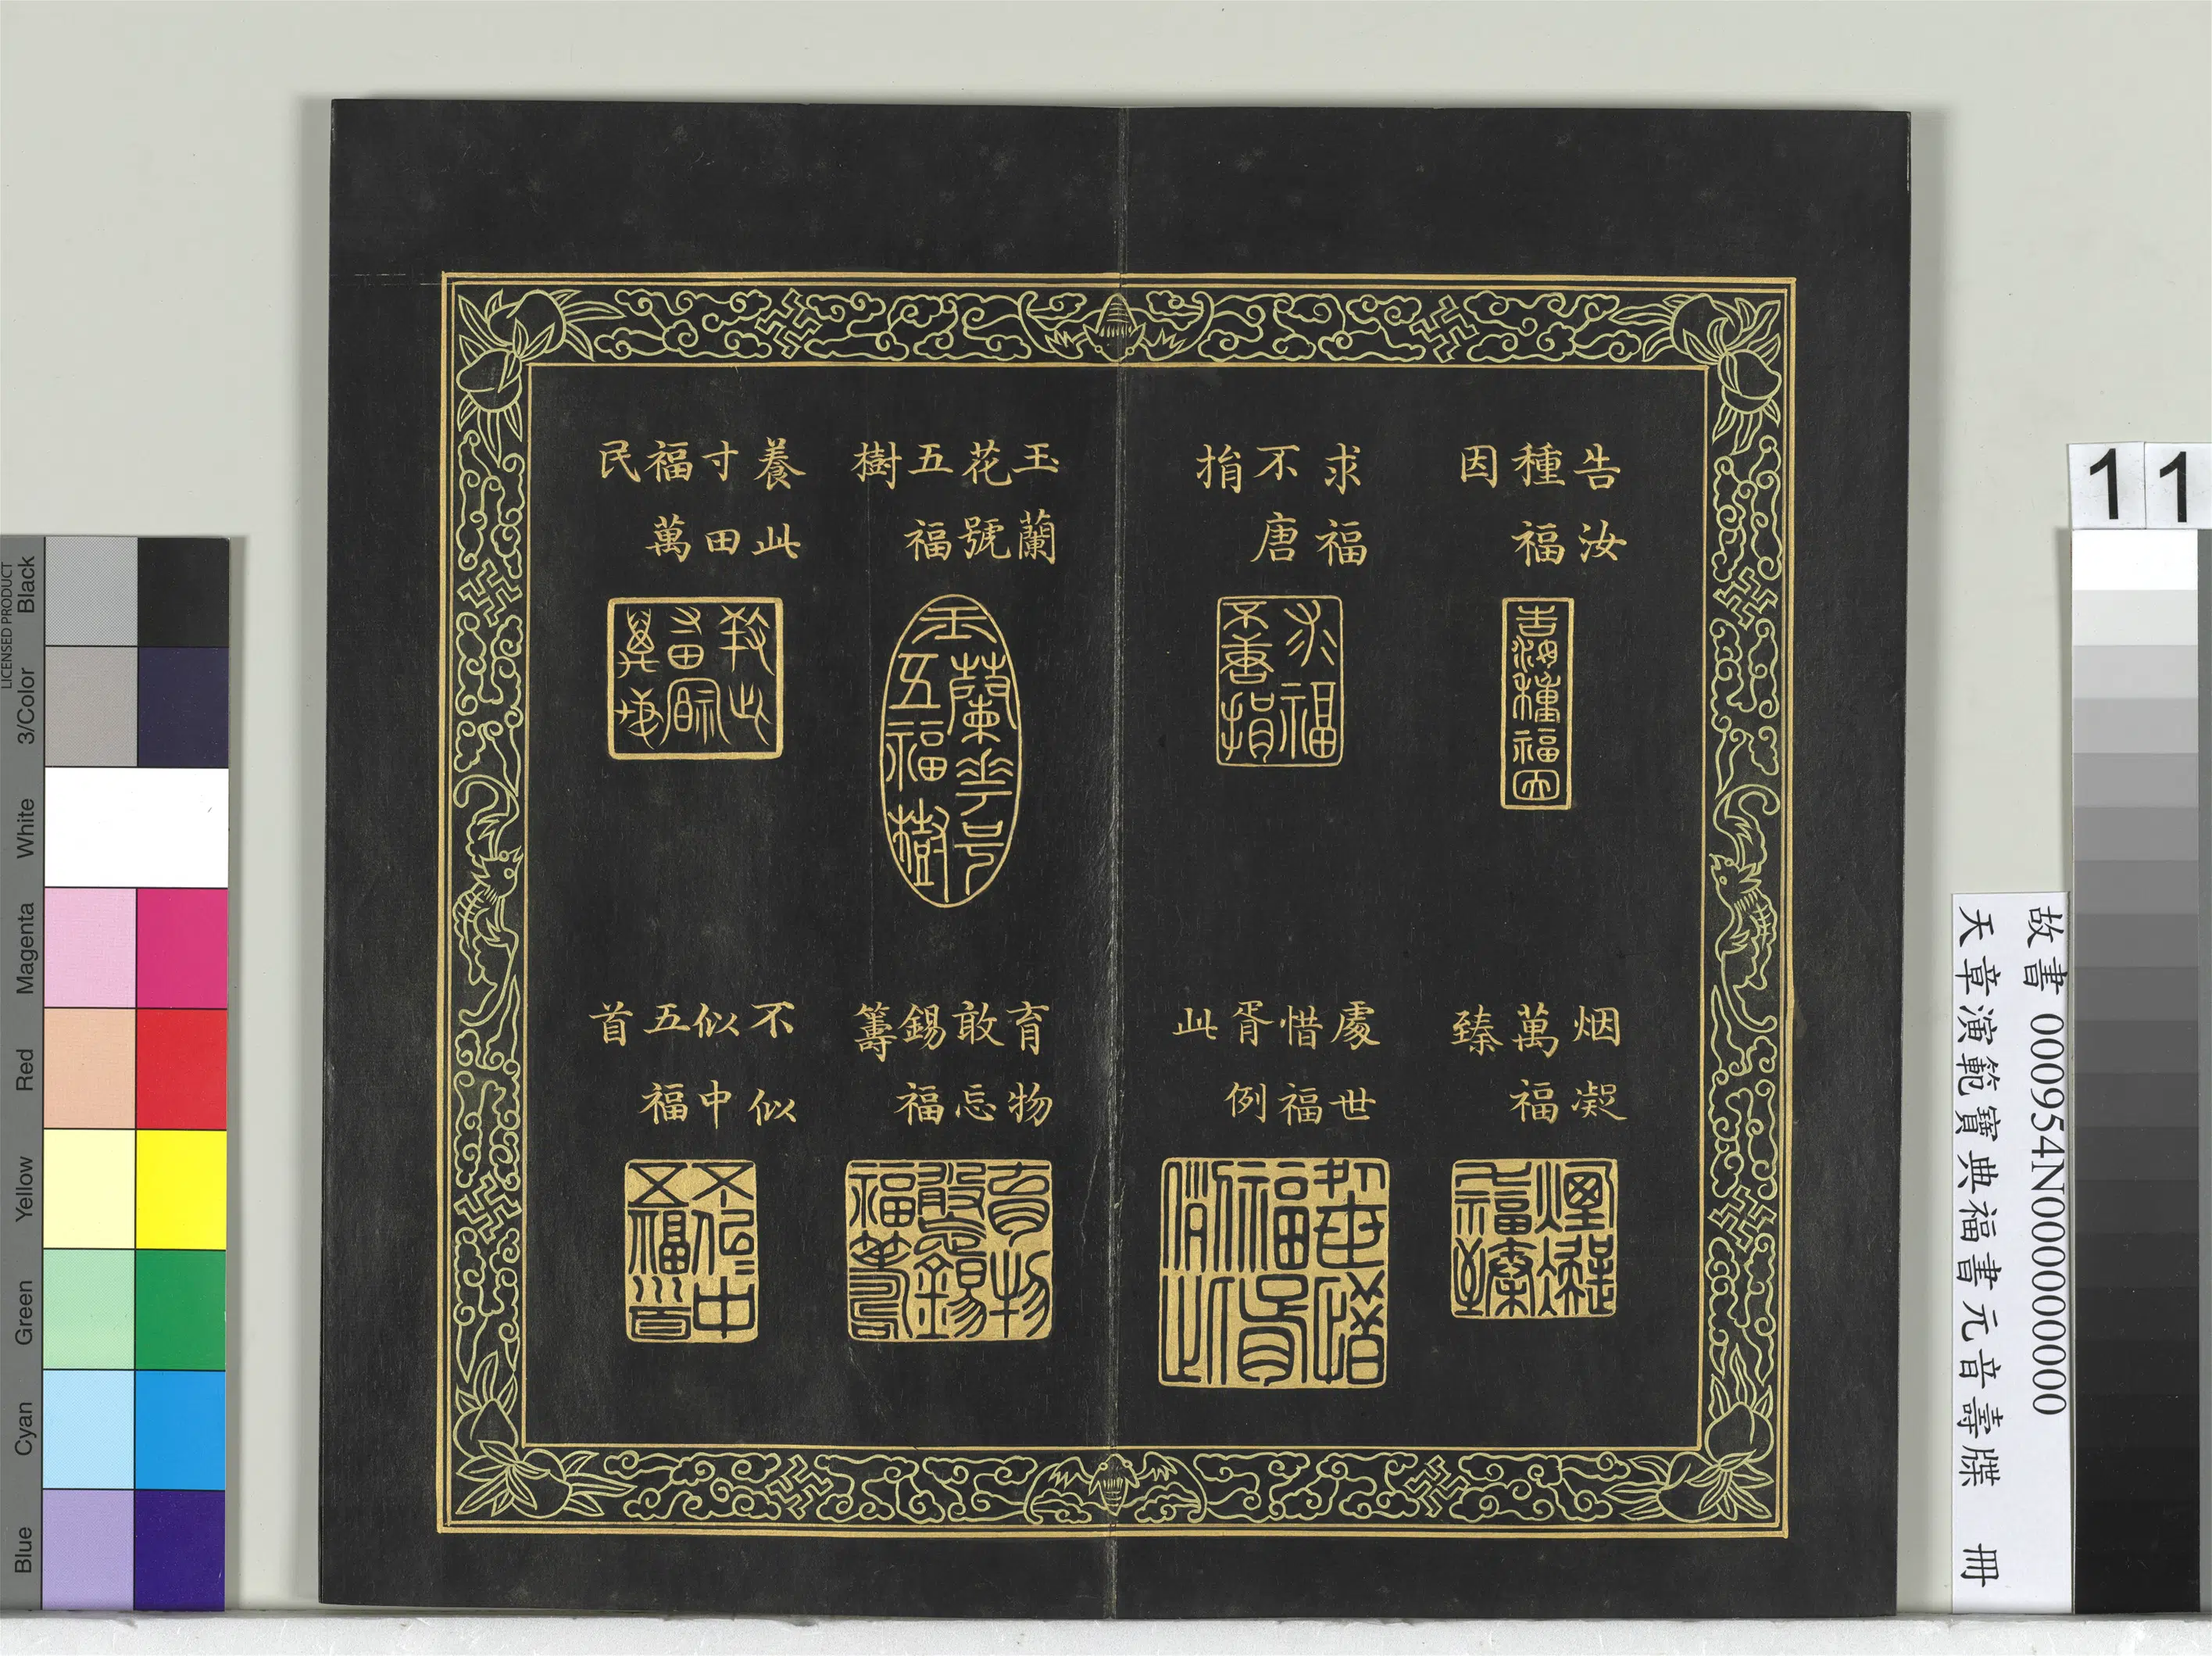 告汝
種福
因
求福
不唐
捐
烟凝
萬福
臻
處世
惜福
胥例
此
玉蘭
花號
五福
樹
養此
寸田
福萬
民
育物
敢忘
錫福
籌
不似
似中
五福
首
告汝種福因
求福
不唐捐
玉蘭花号
五福樹
11
故書 000954N000000000
天章演範寶典福書元音壽牒 冊
LICENSED PRODUCT
Black
3/Color
White
Magenta
Red
Yellow
Green
Cyan
Blue